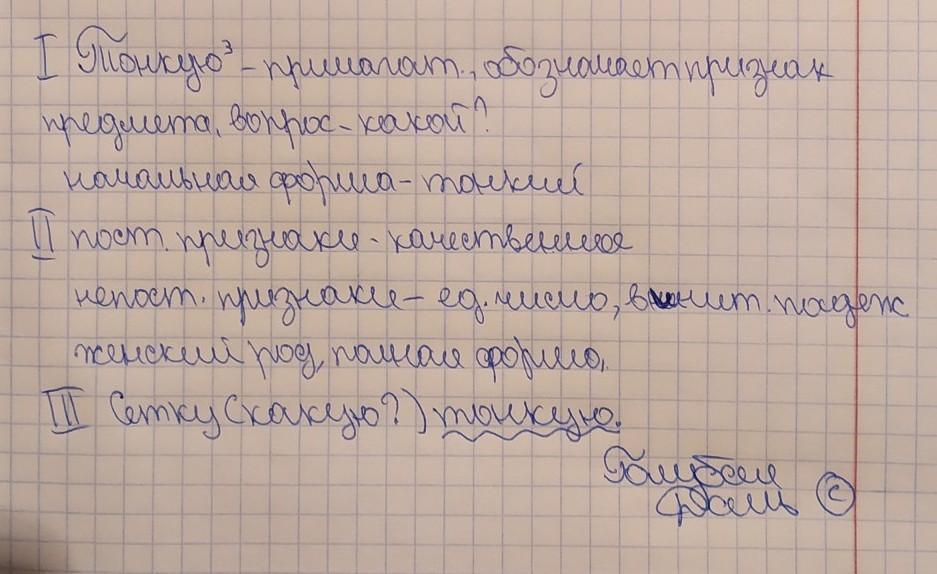 I Тонкую³ - прилагат., обозначает признак
предмета, вопрос - какой?
начальная форма - тонкий
II пост. признаки - качественное
непост. признаки - ед. число, винит. падеж
женский род, полная форма.
III Сетку (какую?) тонкую.
Голубая
Даль ©